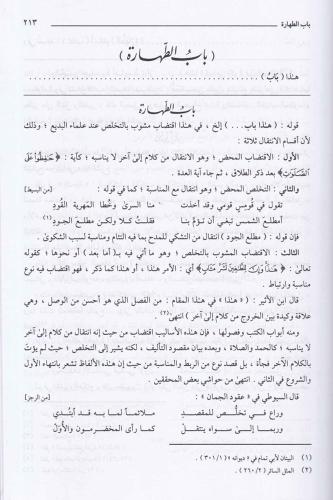 باب الطهارة ٢١٣
( بابُ الطّهارة )
هذا ( بَابُ ) ........................................
بابُ الطّهارة
قوله : ( هذا باب ... ) إلخ ، في هذا اقتضاب مشوب بالتخلص عند علماء البديع ؛ وذلك
لأن أقسام الانتقال ثلاثة :
الأول : الاقتضاب المحض ؛ وهو الانتقال من كلام إلى آخر لا يناسبه ؛ كآية : ﴿ حَٰفِظُواْ عَلَى
ٱلصَّلَوَٰتِ ﴾ بعد ذكر الطلاق ، ثم جاء آية العدة .
والثاني : التخلص المحض ؛ وهو الانتقال مع المناسبة ؛ كما في قوله : [من البسيط]
تقول في قُومسٍ قومي وقد أخذت منا السرىٰ وخُطا المَهرية القُودِ
أمطلعَ الشمس تبغي أن تؤمَّ بنا فقلت كلا ولكن مطلعَ الجودِ (١)
فإن قوله : ( مطلع الجود ) انتقال من التشكي للمدح بما فيه التئام ومناسبة لسبب الشكوىٰ .
الثالث : الاقتضاب المشوب بالتخلص ؛ وهو ما أتي فيه بـ( أما بعد ) أو نحوها ؛ كقوله
تعالىٰ : ﴿ هَٰذَا وَإِنَّ لِلطَّٰغِينَ لَشَرَّ مَـَٔابٍ ﴾ أي : الأمر هذا ، أو هذا كما ذكر ، فهو اقتضاب فيه نوع
مناسبة وارتباط .
قال ابن الأثير : ( « هذا » في هذا المقام : من الفصل الذي هو أحسن من الوصل ، وهي
علاقة وكيدة بين الخروج من كلام إلىٰ آخر ) انتهىٰ (٢) .
ومنه أبواب الكتب وفصولها ، فإن هذه الأساليب اقتضاب من حيث إنه انتقال من كلام إلىٰ آخر
لا يناسبه ؛ كالحمد والصلاة ، وبعده بيان مقصود التأليف ، لكنه يشير إلى التخلص ؛ حيث لم يؤت
بالكلام الآخر فجأة ، بل قصد نوع من الربط والمناسبة من حيث إن هذه الألفاظ تشعر بانتهاء الأول
والشروع في الثاني . انتهىٰ من حواشي بعض المحققين .
قال السيوطي في « عقود الجمان » : [من الرجز]
وراع في تخلُّص للمقصد ملائماً لما به قد ابتُدي
وربما إلىٰ سواه ينتقلْ كما رأى المخضرمون والأُوَلْ
(١) البيتان لأبي تمام في « ديوانه » ( ٣٠١/١ ) .
(٢) المثل السائر ( ٢٦٠/٢ ) .